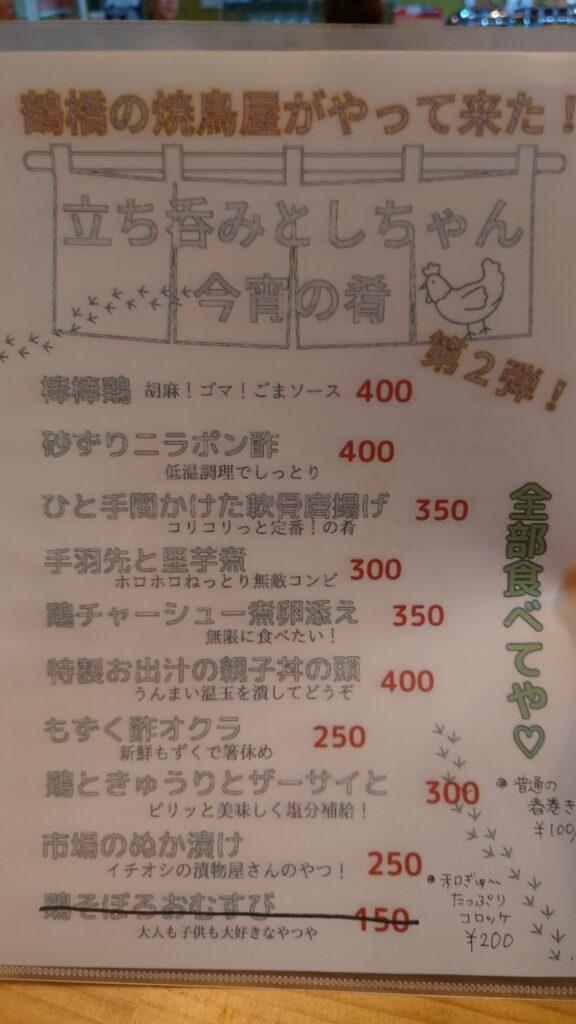 鶴橋の焼鳥屋がやって来た！
立ち呑みとしちゃん
今宵の肴
第２弾！
棒棒鶏 胡麻！ゴマ！ごまソース 400
砂ずりニラポン酢 400
低温調理でしっとり
ひと手間かけた軟骨唐揚げ 350
コリコリっと定番！の肴
手羽先と里芋煮 300
ホロホロねっとり無敵コンビ
鶏チャーシュー煮卵添え 350
無限に食べたい！
特製お出汁の親子丼の頭 400
うんまい温玉を潰してどうぞ
もずく酢オクラ 250
新鮮もずくで箸休め
鶏ときゅうりとザーサイと 300
ピリッと美味しく塩分補給！
市場のぬか漬け 250
イチオシの漬物屋さんのやつ！
鶏そぼろおむすび 150
大人も子供も大好きなやつや
全部食べてや♡
普通の
春巻き
¥100/
和ぎゅ〜
たっぷり
コロッケ
¥200